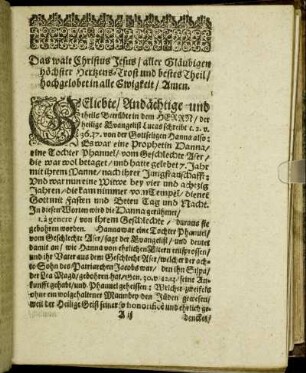 Das walt Christus Jesus / aller Gläubigen
höchster Hertzens-Trost und bestes Theil /
hochgelobet in alle Ewigkeit / Amen.
Geliebte / Andächtige und
theils Betrübte in dem HERRN / der
heilige Evangelist Lucas schreibt c. 2. v.
36. 37. von der Gottseligen Hanna also:
Es war eine Prophetin Hanna /
eine Tochter Phanuel / vom Geschlechte Aser /
die war wol betaget / und hatte gelebet 7. Jahr
mit ihrem Manne / nach ihrer Jungfrauschafft:
Und war nun eine Witwe bey vier und achtzig
Jahren / die kam nimmer vom Tempel / dienet
Gott mit Fasten und Beten Tag und Nacht.
In diesen Worten wird die Hanna gerühmet /
1. à genere / von ihrem Geschlechte / daraus sie
gebohren worden. Hanna war eine Tochter Phanuel /
vom Geschlechte Aser / sagt der Evangelist / und deutet
damit an / wie Hanna von ehrlichen Eltern entsprossen /
und ihr Vater aus dem Geschlecht Aser / welcher der achte
Sohn des Patriarchen Jacobs war / den ihm Silpa /
der Lea Magd / gebohren hat / Gen. 30. v. 12. 13. seine An-
kunfft gehabt / und Phanuel geheissen: Welcher zweifels
ohne ein wolgehaltener Mann bey den Jüden gewesen /
weil der Heilige Geist seiner so honorificè und ehrlich ge-
A ij
dencket /